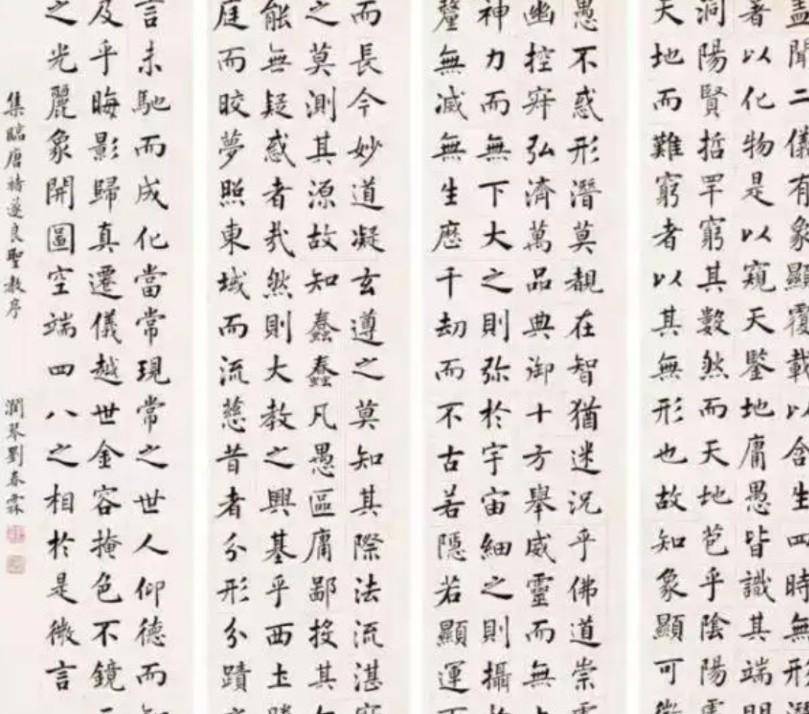 蓋聞二儀有象顯覆載以含生四時無形潛
著以化物是以窺天鑒地庸愚皆識其端明
洞陽賢哲罕窮其數然而天地苞乎陰陽
天地而難窮者以其無形也故知象顯可徵
愚不惑形潛莫覩在智猶迷況乎佛道崇虛
幽控寂弘濟萬品典御十方舉威靈而無上
神力而無下大之則弥於宇宙細之則攝於
釐無滅無生歷千劫而不古若隱若顯運百
而長今妙道凝玄遵之莫知其際法流湛寂
之莫測其源故知蠢蠢凡愚區庸鄙投其
能無疑惑者哉然則大教之興基乎西土騰
庭而皎夢照東域而流慈昔者分形分蹟
言未馳而成化當常現常之世人仰德而知
及乎晦影歸真遷儀越世金容掩色不鏡三
之光麗象開圖空端四八之相於是微言
集臨唐褚遂良聖教序
潤琴劉春霖